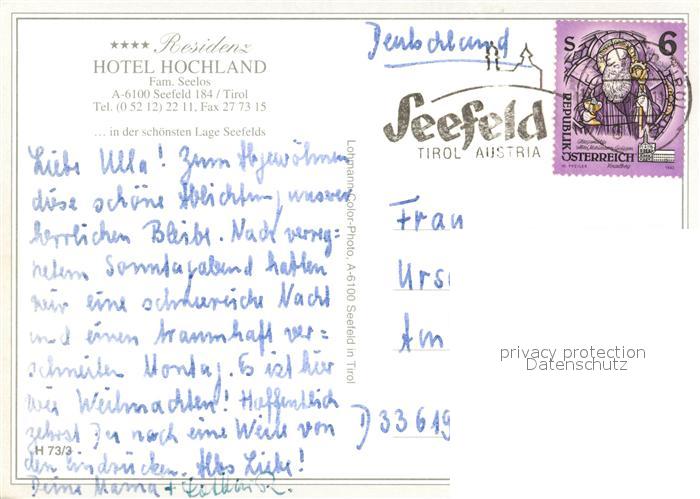 ★★★★ Residenz
HOTEL HOCHLAND
Fam. Seelos
A-6100 Seefeld 184 / Tirol
Tel. (0 52 12) 22 11, Fax 27 73 15
... in der schönsten Lage Seefelds
Liebe Ulla! Zum Abgewöhnen
diese schöne Ablichtung unserer
herrlichen Bleibe. Nach verreg=
netem Sonntagabend hatten
wir eine schneereiche Nacht
und einen traumhaft ver=
schneiten Montag. Es ist hier
wie Weihnachten! Hoffentlich
zehrst Du noch eine Weile von
den Eindrücken. Alles Liebe!
Deine Mama +
H 73/3
Lohmann-Color-Photo, A-6100 Seefeld in Tirol
Deutschland
Seefeld
TIROL AUSTRIA
S 6
REPUBLIK
ÖSTERREICH
Frau
Urs
Am
D 33619
privacy protection
Datenschutz